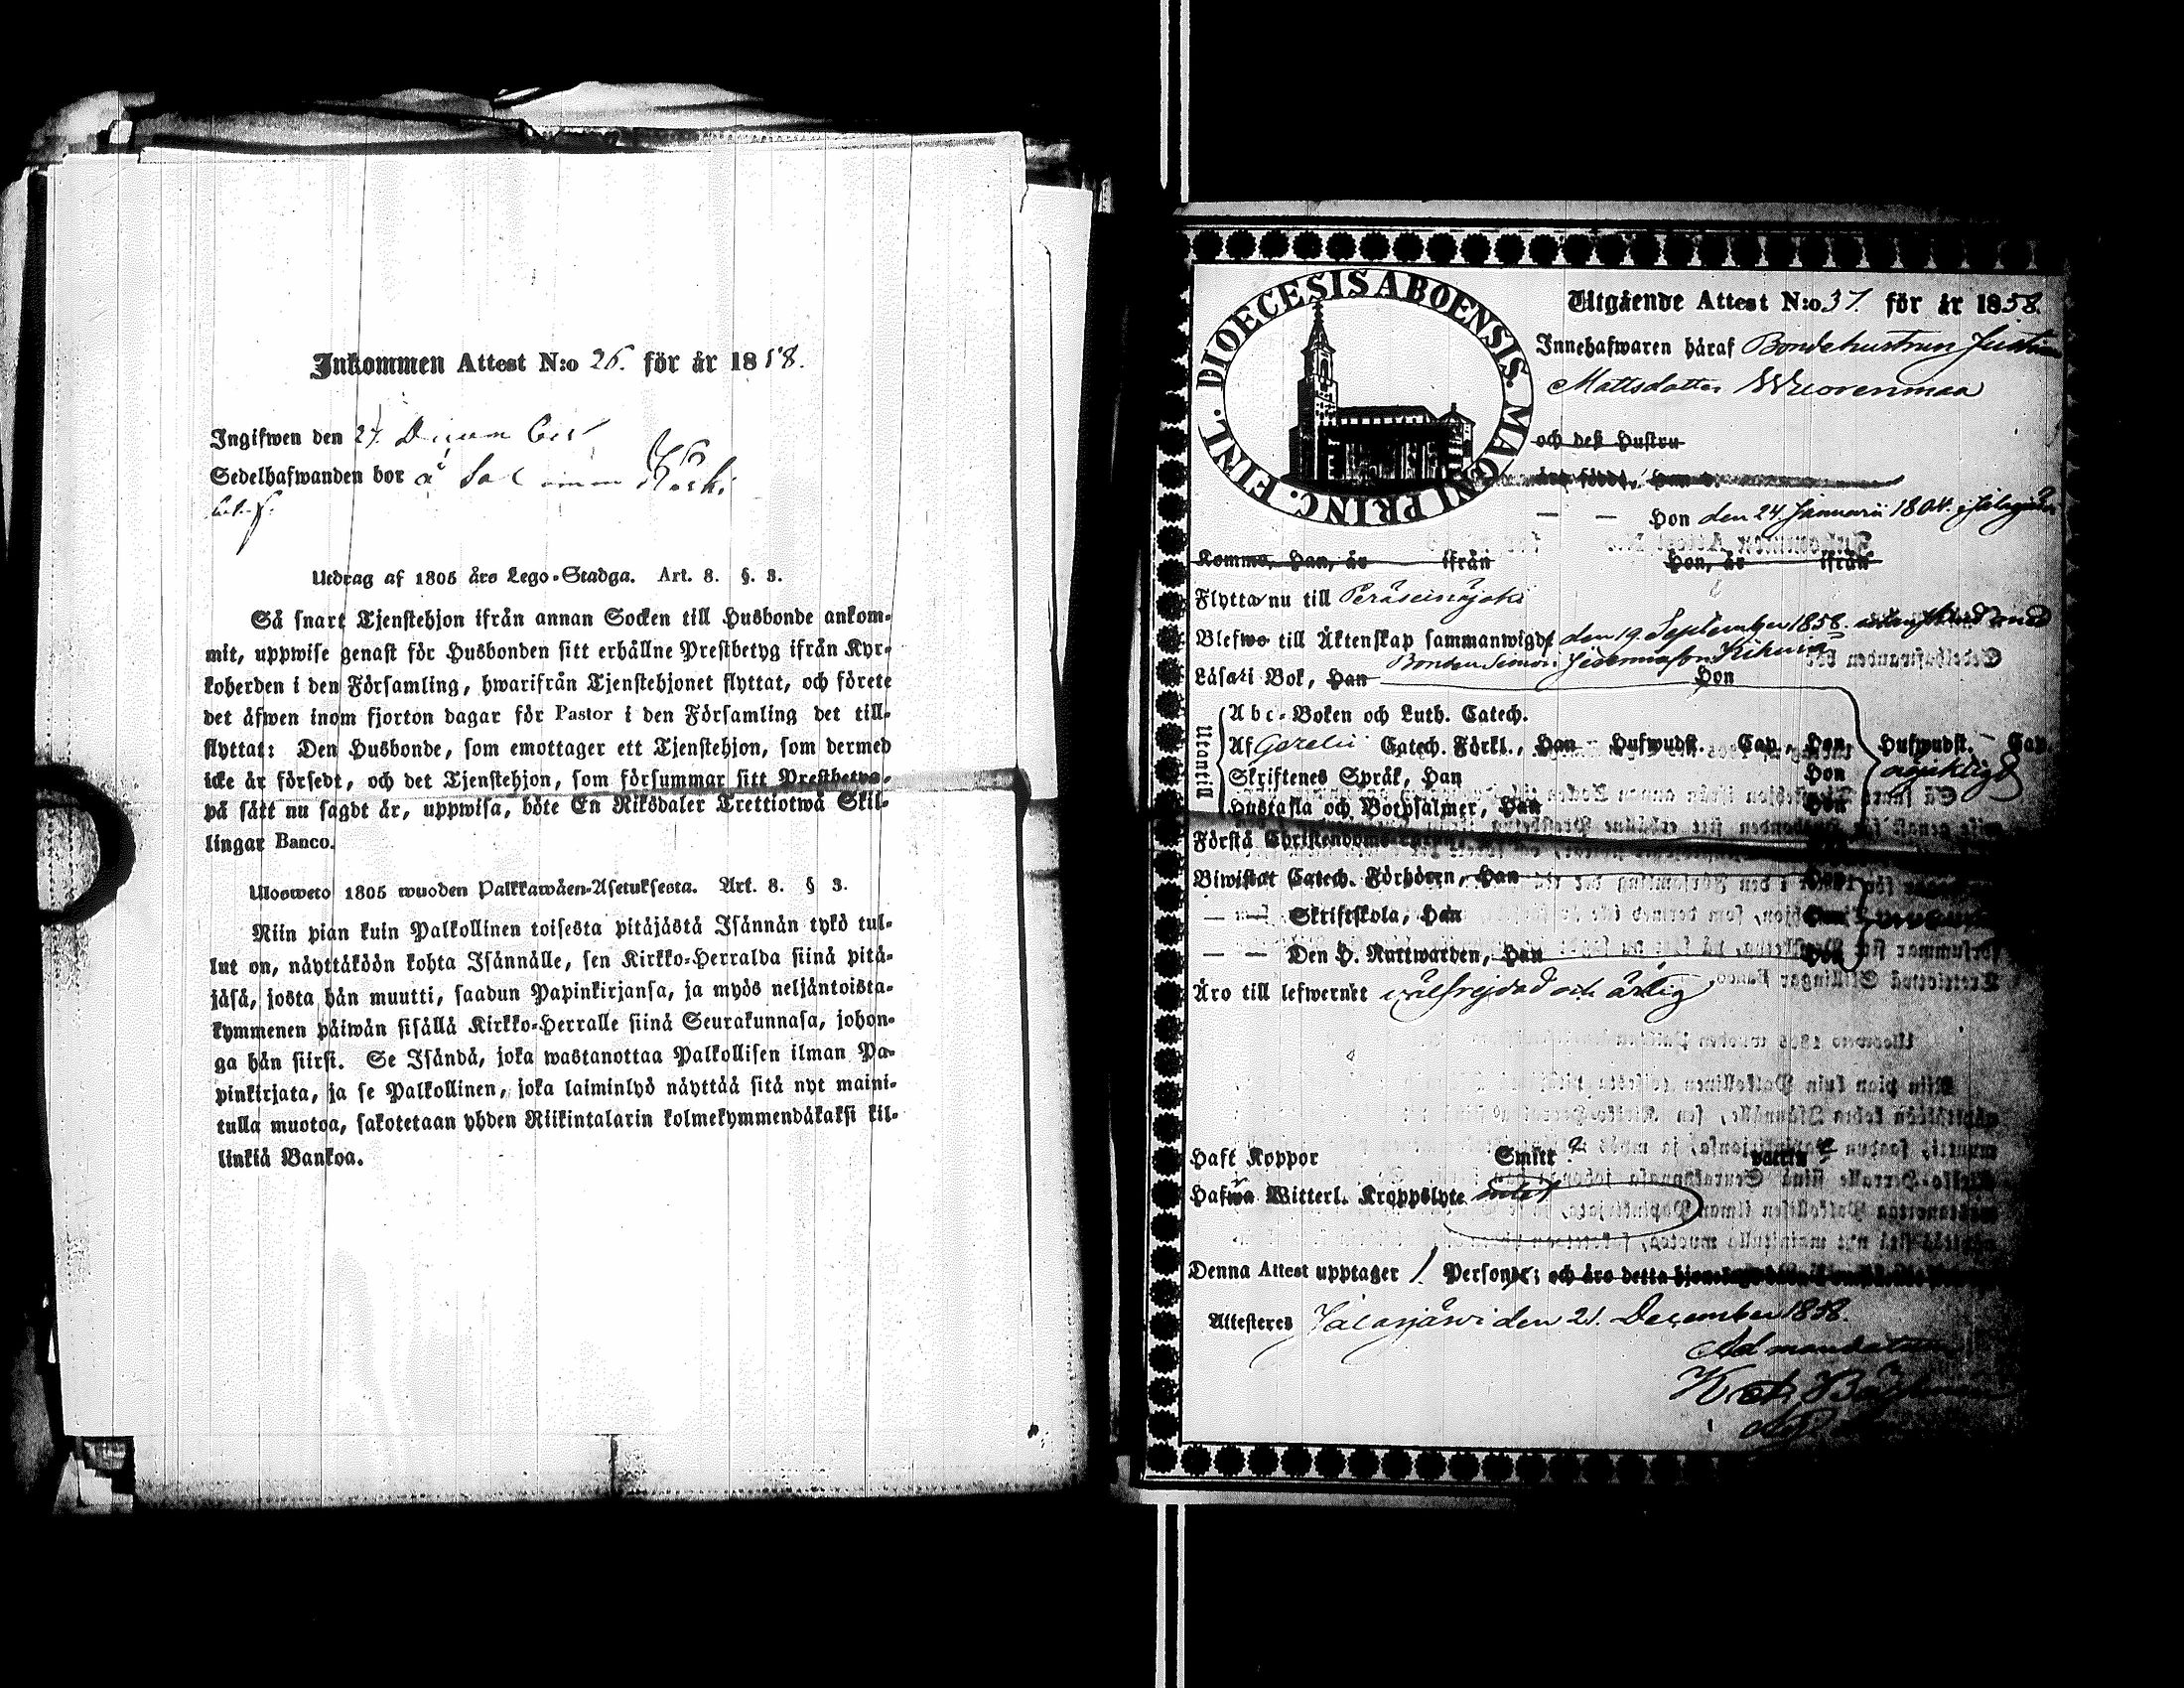 Inkommen Attest N:o 26. för år 1858.
Ingifwen den 27. December
Sedelhafwanden bor å
Utdrag af 1805 års Lego-Stadga. Art. 8. §. 3.
Så snart Tjenstehjon ifrån annan Socken till Husbonde ankom-
mit, uppwise genast för Husbonden sitt erhållne Prestbetyg ifrån Kyr-
koherden i den Församling, hwarifrån Tjenstehjonet flyttat, och förete
det äfwen inom fjorton dagar för Pastor i den Församling det till-
flyttat: Den Husbonde, som emottager ett Tjenstehjon, som dermed
icke är försedt, och det Tjenstehjon, som försummar sitt Prestbetyg,
på sätt nu sagdt är, uppwisa, böte En Riksdaler Trettiotwå Skil-
lingar Banco.
Ulosweto 1805 wuoden Palkkawäen-Asetuksesta. Art. 8. § 3.
Niin pian kuin Palkollinen toisesta pitäjästä Isännän tykö tul-
lut on, näyttäköön kohta Isännälle, sen Kirkko-Herralda siinä pitä-
jäsä, josta hän muutti, saadun Papinkirjansa, ja myös neljäntoista-
kymmenen päiwän sisällä Kirkko-Herralle siinä Seurakunnasa, johon-
ga hän siirsi. Se Isändä, joka wastanottaa Palkollisen ilman Pa-
pinkirjata, ja se Palkollinen, joka laiminlyö näyttää sitä nyt maini-
tulla muotoa, sakotetaan yhden Riikintalarin kolmekymmendäkaksi kil-
linkiä Bankoa.
DIOECESIS ABOENSIS. MAGNI PRINC. FINL.
Utgående Attest N:o 37. för år 1858.
Innehafwaren häraf Bondehustrun
Mattsdotter Wuorenmaa
och deß Hustru
äro födde, Han d.
— — Hon den 24 Januarii 1804.
Komme, Han, år ifrån Hon, år ifrån
Flytta nu till Peräseinäjoki
Blefwo till Äktenskap sammanwigde den 19. September 1858.
Bonden Simon
Läsa i Bok, Han Hon
Utantill
Abc-Boken och Luth. Catech.
Af Gezelii Catech. Förkl., Han Hufwudst. Cap., Hon Hufwudst. Cap.
Skriftenes Språk, Han Hon
Hustafla och Botpsalmer, Han Hon
Första Christendoms
Biwistat Catech. Förhören, Han Hon
— — Skriftskola, Han
— — Den H. Nattwarden, Han Hon
Äro till lefwernet välfrejdad och ärlig
Haft Koppor Smitt
Hafwa Witterl. Kroppslyte intet
Denna Attest upptager 1. Personer; och äro detta
Attesteres Jalasjärvi den 21. December 1858.
Ad mandatum